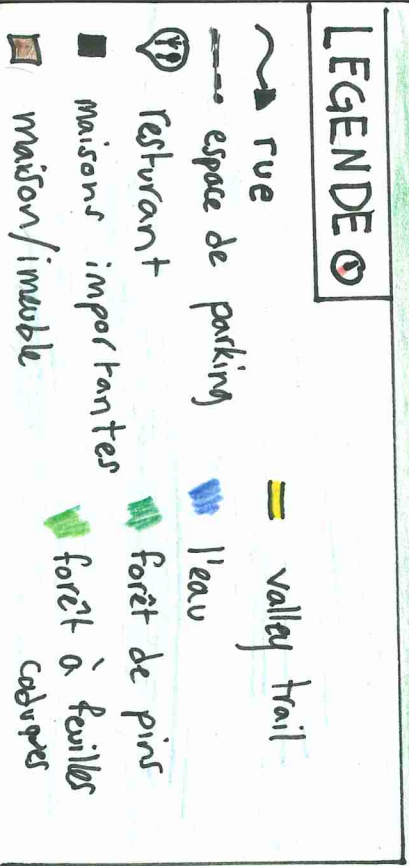 LEGENDE
rue
espace de parking
resturant
maisons importantes
maison/imeuble
valley trail
l'eau
forêt de pins
forêt à feuilles
caduques